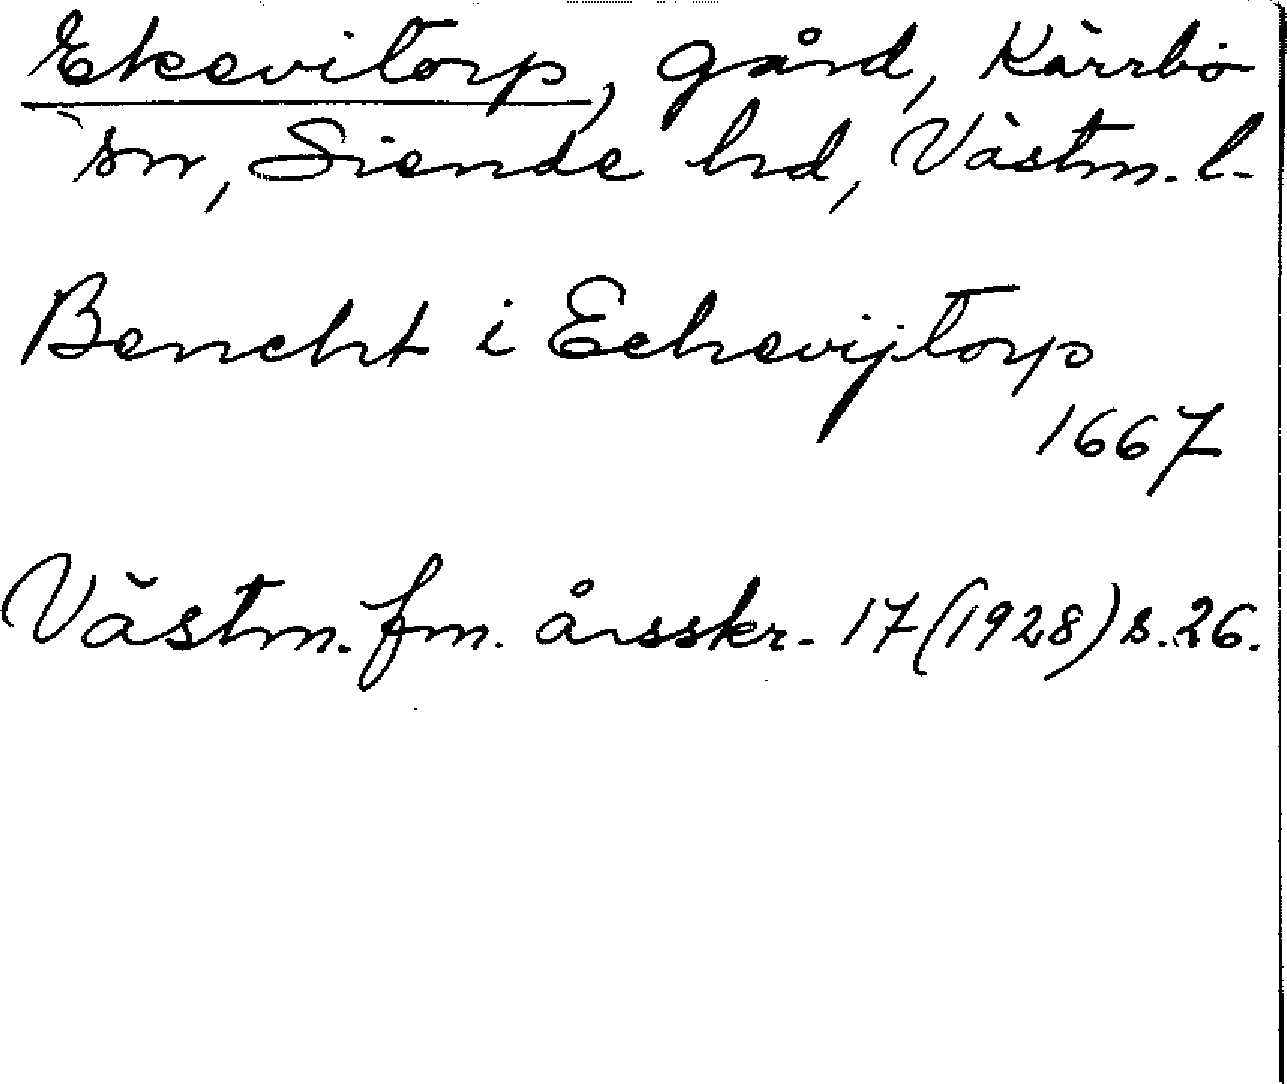 Ekevitorp, gård, Kärrbo
sn, Siende hd, Västm. l.
Bencht i Echevijtorp
1667
Västm. fm. årsskr. 17 (1928) s. 26.